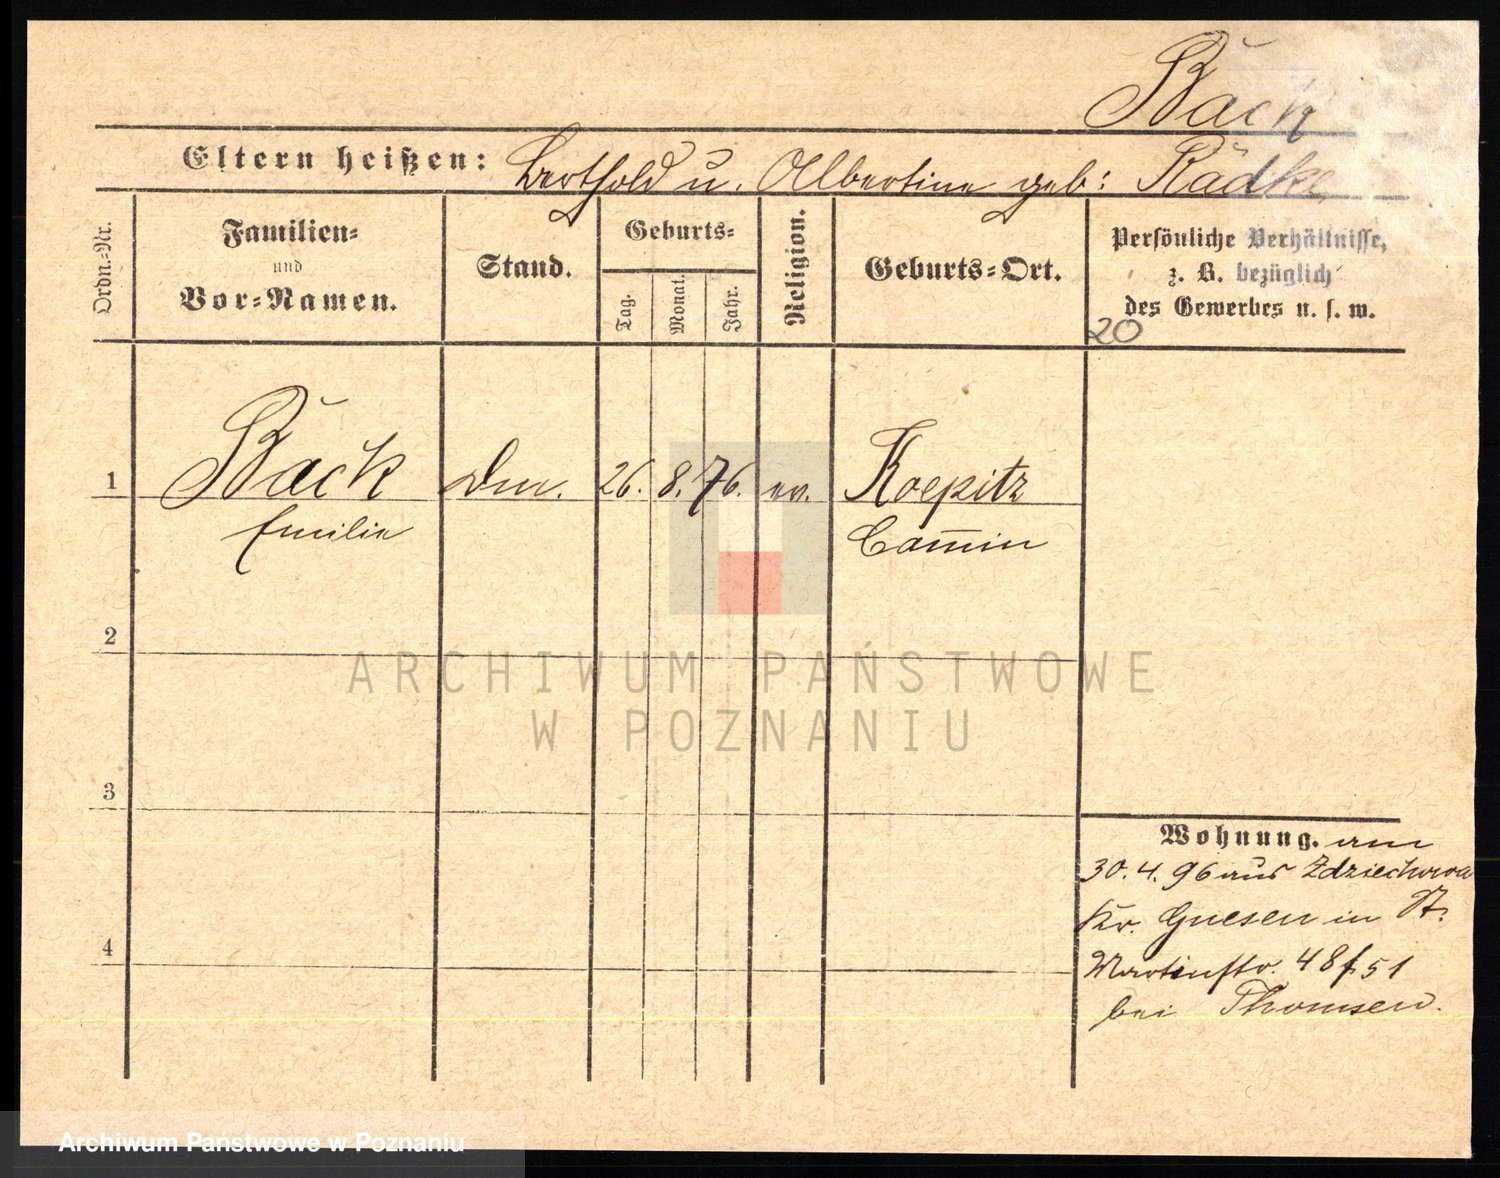 Back
Eltern heißen: Berthold u. Albertine geb: Rädke
Ordn.-Nr.
Familien-
und
Vor-Namen.
Stand.
Geburts-
Tag.
Monat.
Jahr.
Religion.
Geburts-Ort.
Persönliche Verhältnisse,
z. B. bezüglich
des Gewerbes u. s. w.
20
1 Back Dm. 26. 8. 76. ev. Koepitz
Emilie Cam̅in
2
ARCHIWUM PAŃSTWOWE
W POZNANIU
3
4
Wohnung. am
30. 4. 96 aus Zdziechowa
Kr. Gnesen in St.
Martinstr. 48 f. 51
bei Thomsen.
Archiwum Państwowe w Poznaniu